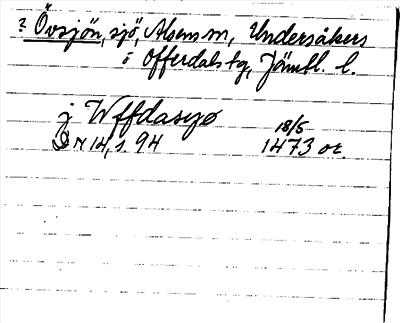 ? Övsjön, sjö, Alsens sn, Undersåkers
o Offerdals tg, Jämtl. l.
j Wffdasyø 18/5
DN 14, s. 94 1473 or.